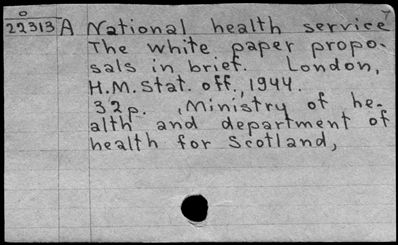 O
22313 A National health service
The white paper propo-
sals in brief. London,
H.M. Stat. off., 1944.
32p. , Ministry of he-
alth and department of
health for Scotland,